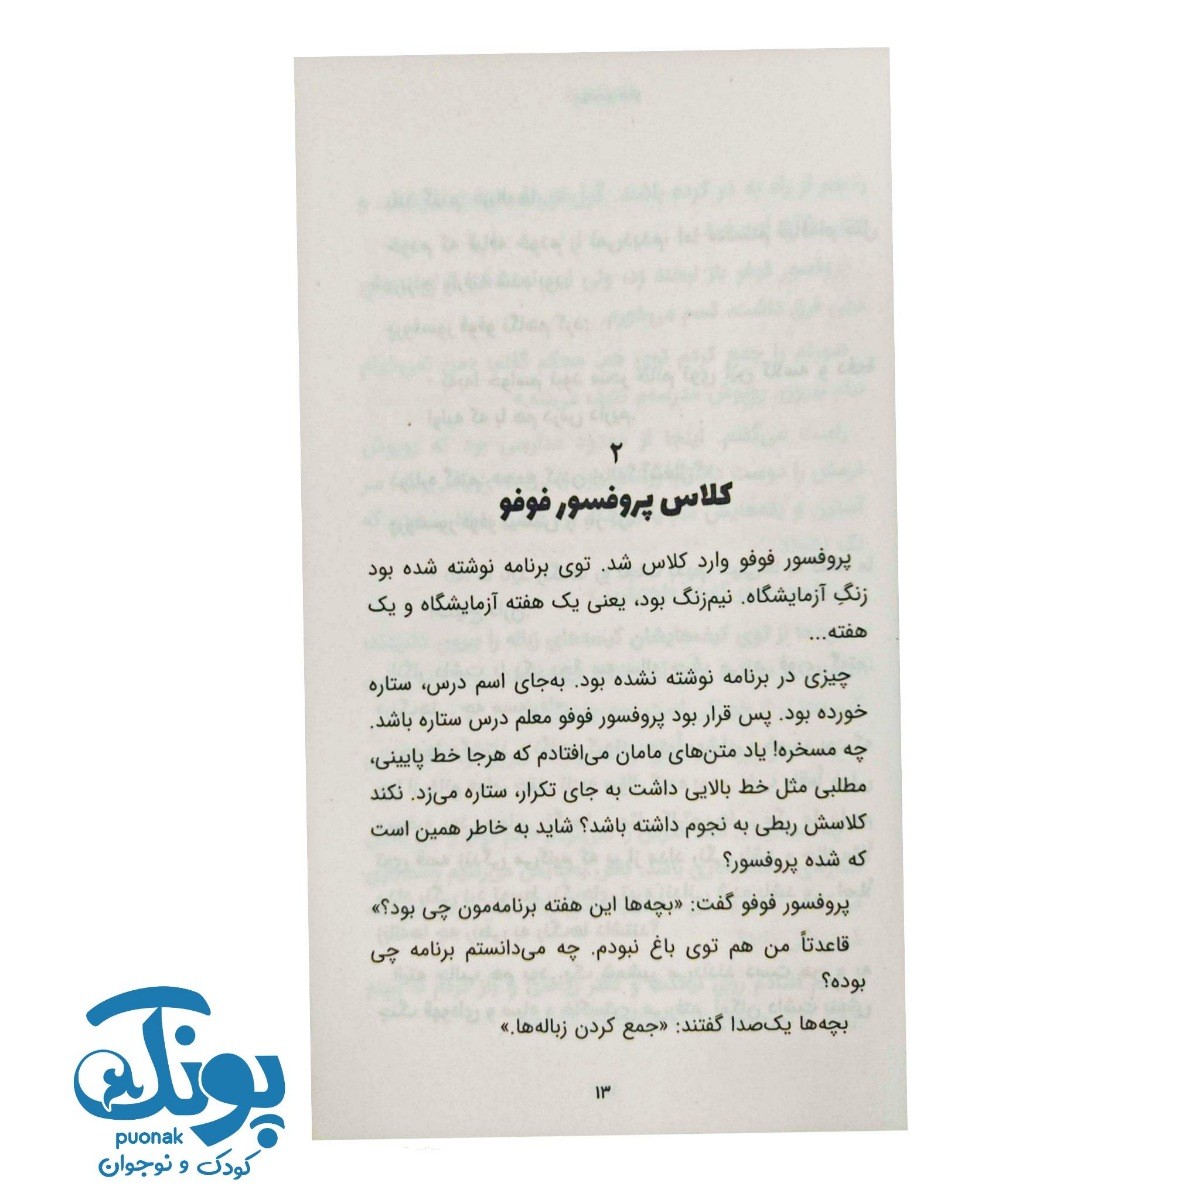 ۲
کلاس پروفسور فوفو
پروفسور فوفو وارد کلاس شد. توی برنامه نوشته شده بود
زنگِ آزمایشگاه. نیم‌زنگ بود، یعنی یک هفته آزمایشگاه و یک
هفته...
چیزی در برنامه نوشته نشده بود. به‌جای اسم درس، ستاره
خورده بود. پس قرار بود پروفسور فوفو معلم درس ستاره باشد.
چه مسخره! یاد متن‌های مامان می‌افتادم که هرجا خط پایینی،
مطلبی مثل خط بالایی داشت به جای تکرار، ستاره می‌زد. نکند
کلاسش ربطی به نجوم داشته باشد؟ شاید به خاطر همین است
که شده پروفسور؟
پروفسور فوفو گفت: «بچه‌ها این هفته برنامه‌مون چی بود؟»
قاعدتاً من هم توی باغ نبودم. چه می‌دانستم برنامه چی
بوده؟
بچه‌ها یک‌صدا گفتند: «جمع کردن زباله‌ها.»
۱۳
پونک
puonak
کودک و نوجوان